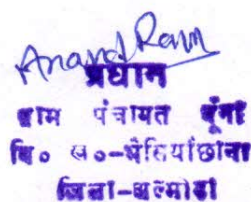 Anand Ram
प्रधान
ग्राम पंचायत पूंना
वि० ख०-भैसियाछाना
जिला-अल्मोडा